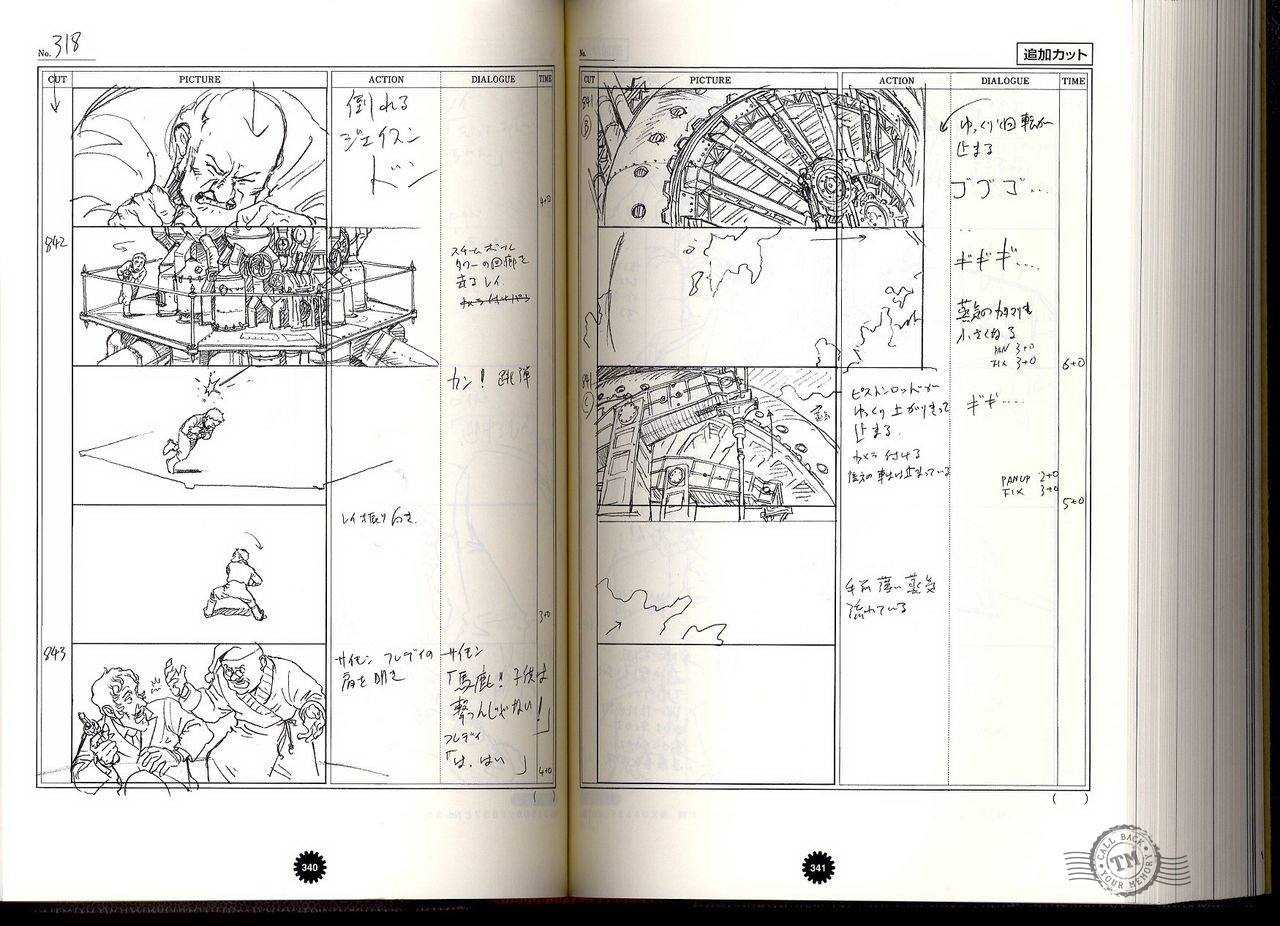 No. 318
CUT PICTURE ACTION DIALOGUE TIME
倒れる
ジェイスン
ドン
4+0
842
スチームボール
タワーの回廊を
走るレイ
カン！ 跳弾
レイ振り向き
3+0
843
サイモン フレディの
肩を叩き
サイモン
「馬鹿！子供は
撃つんじゃない！」
フレディ
「は、はい」
4+0
( )
340
No.
追加カット
CUT PICTURE ACTION DIALOGUE TIME
841
B
ゆっくり回転が
止まる
ゴゴゴ…
ギギギ…
蒸気のカタマリも
小さくなる
PAN 3+0
FIX 3+0
6+0
841
C
ピストンロッドが
ゆっくり上がりきって
止まる
カメラ付ける
ギギ….
PAN UP 2+0
FIX 3+0
5+0
手前 薄い蒸気
流れている
( )
341
CALL BACK
TM
YOUR MEMORY